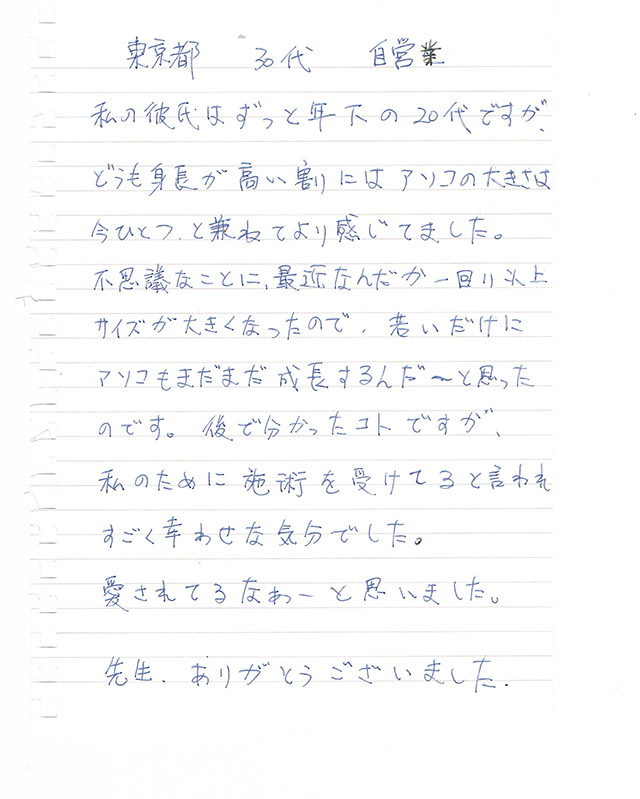 東京都　30代　自営業
私の彼氏はずっと年下の20代ですが、
どうも身長が高い割にはアソコの大きさは
今ひとつ、と兼ねてより感じてました。
不思議なことに、最近なんだか一回り以上
サイズが大きくなったので、若いだけに
アソコもまだまだ成長するんだ〜と思った
のです。後で分かったコトですが、
私のために施術を受けてると言われ
すごく幸わせな気分でした。
愛されてるなわーと思いました。
先生、ありがとうございました.